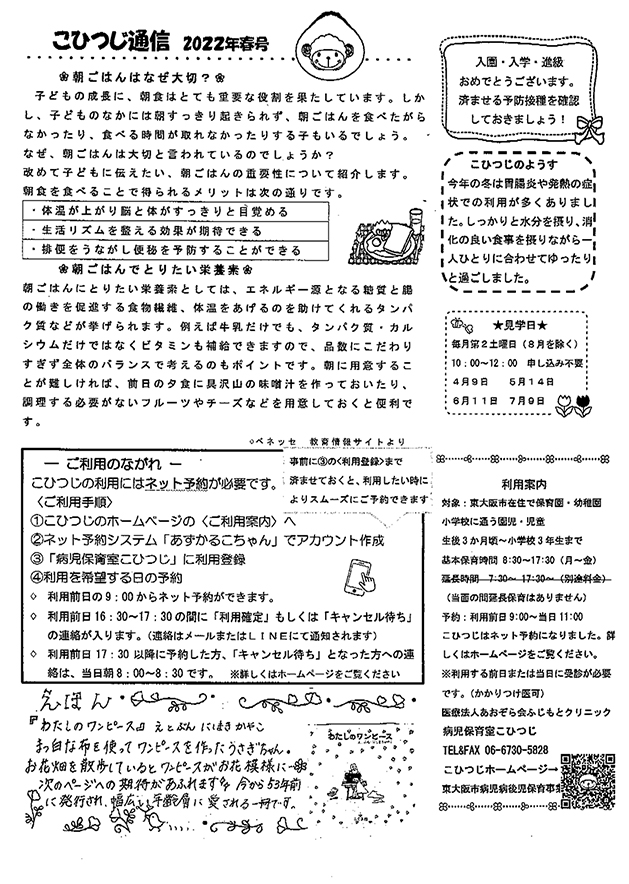 こひつじ通信 2022年春号
❀朝ごはんはなぜ大切？❀
子どもの成長に、朝食はとても重要な役割を果たしています。しか
し、子どものなかには朝すっきり起きられず、朝ごはんを食べたがら
なかったり、食べる時間が取れなかったりする子もいるでしょう。
なぜ、朝ごはんは大切と言われているのでしょうか？
改めて子どもに伝えたい、朝ごはんの重要性について紹介します。
朝食を食べることで得られるメリットは次の通りです。
・体温が上がり脳と体がすっきりと目覚める
・生活リズムを整える効果が期待できる
・排便をうながし便秘を予防することができる
❀朝ごはんでとりたい栄養素❀
朝ごはんにとりたい栄養素としては、エネルギー源となる糖質と腸
の働きを促進する食物繊維、体温をあげるのを助けてくれるタンパ
ク質などが挙げられます。例えば牛乳だけでも、タンパク質・カル
シウムだけではなくビタミンも補給できますので、品数にこだわり
すぎず全体のバランスで考えるのもポイントです。朝に用意するこ
とが難しければ、前日の夕食に具沢山の味噌汁を作っておいたり、
調理する必要がないフルーツやチーズなどを用意しておくと便利で
す。
◇ベネッセ 教育情報サイトより
入園・入学・進級
おめでとうございます。
済ませる予防接種を確認
しておきましょう！
こひつじのようす
今年の冬は胃腸炎や発熱の症
状での利用が多くありまし
た。しっかりと水分を摂り、消
化の良い食事を摂りながら一
人ひとりに合わせてゆったり
と過ごしました。
★見学日★
毎月第2土曜日（8月を除く）
10：00～12：00 申し込み不要
4月9日 5月14日
6月11日 7月9日
― ご利用のながれ ―
こひつじの利用にはネット予約が必要です。
〈ご利用手順〉
①こひつじのホームページの〈ご利用案内〉へ
②ネット予約システム「あずかるこちゃん」でアカウント作成
③「病児保育室こひつじ」に利用登録
④利用を希望する日の予約
◇ 利用前日の9：00からネット予約ができます。
◇ 利用前日16：30～17：30の間に「利用確定」もしくは「キャンセル待ち」
の連絡が入ります。（連絡はメールまたはLINEにて通知されます）
◇ 利用前日17：30以降に予約した方、「キャンセル待ち」となった方への連
絡は、当日朝8：00～8：30です。 ※詳しくはホームページをご覧ください
事前に③の<利用登録>まで
済ませておくと、利用したい時に
よりスムーズにご予約できます
利用案内
対象：東大阪市在住で保育園・幼稚園
小学校に通う園児・児童
生後3か月頃～小学校3年生まで
基本保育時間 8:30～17:30（月～金）
延長時間 7:30～ 17:30～（別途料金）
（当面の間延長保育はありません）
予約：利用前日9:00～当日11:00
こひつじはネット予約になりました。詳
しくはホームページをご覧ください。
※利用する前日または当日に受診が必要
です。（かかりつけ医可）
医療法人あおぞら会ふじもとクリニック
病児保育室こひつじ
TEL&FAX 06-6730-5828
こひつじホームページ→
東大阪市病児病後児保育事業
えほん
『わたしのワンピース』 えとぶん にしまきかやこ
まっ白な布を使ってワンピースを作ったうさぎちゃん。
お花畑を散歩しているとワンピースがお花模様に…
次のページへの期待があふれます 今から53年前
に発行され、幅広い年齢層に愛される一冊です。
わたしのワンピース